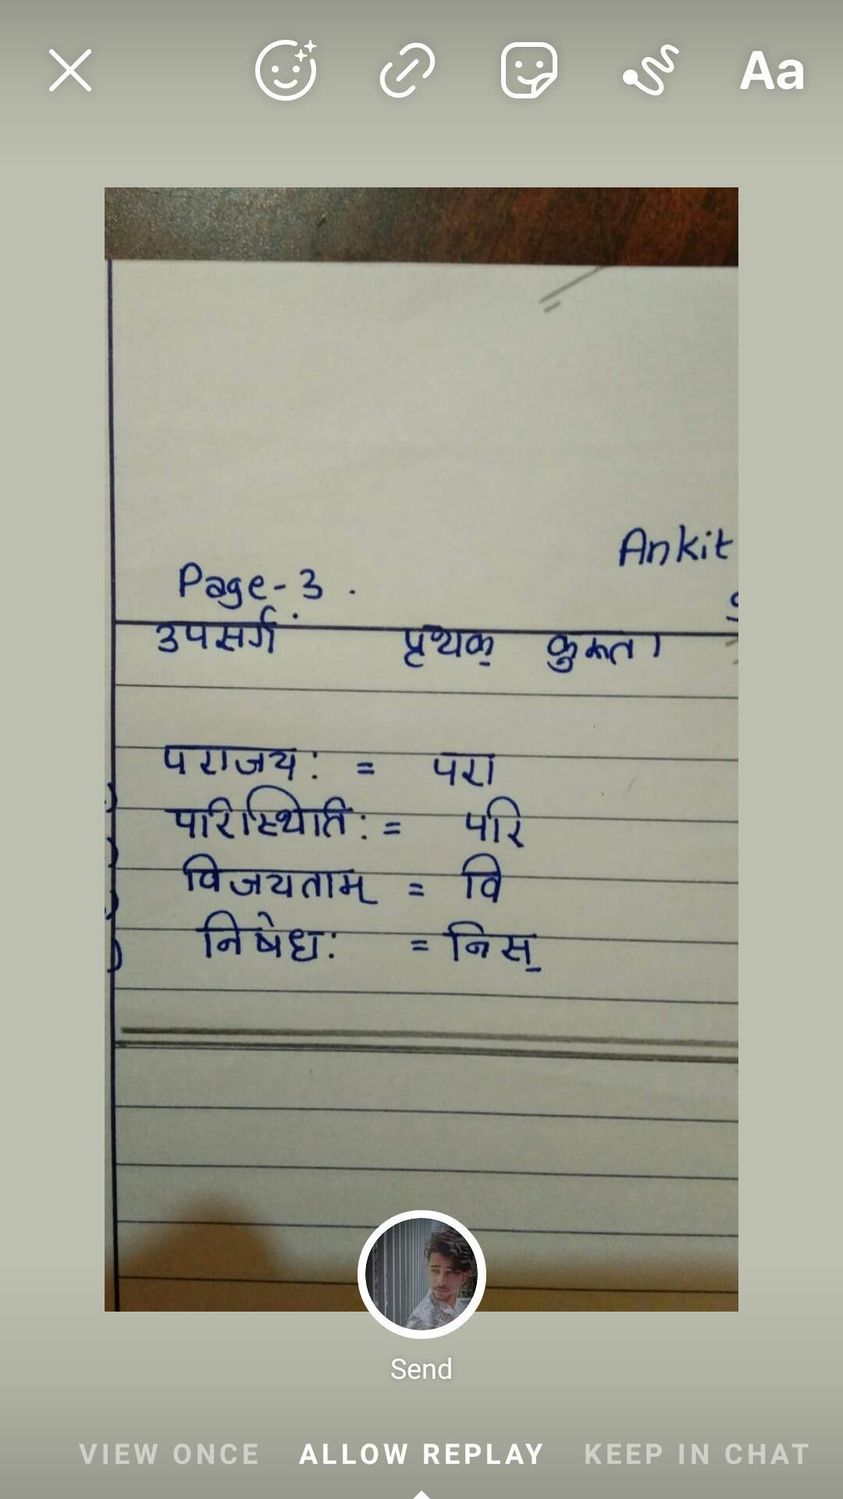 Aa
Ankit
Page-3.
उपसर्गं पृथक् कुरुत।
पराजय: = परा
परिस्थिति: = परि
विजयताम् = वि
निषेध: = निस्
Send
VIEW ONCE ALLOW REPLAY KEEP IN CHAT